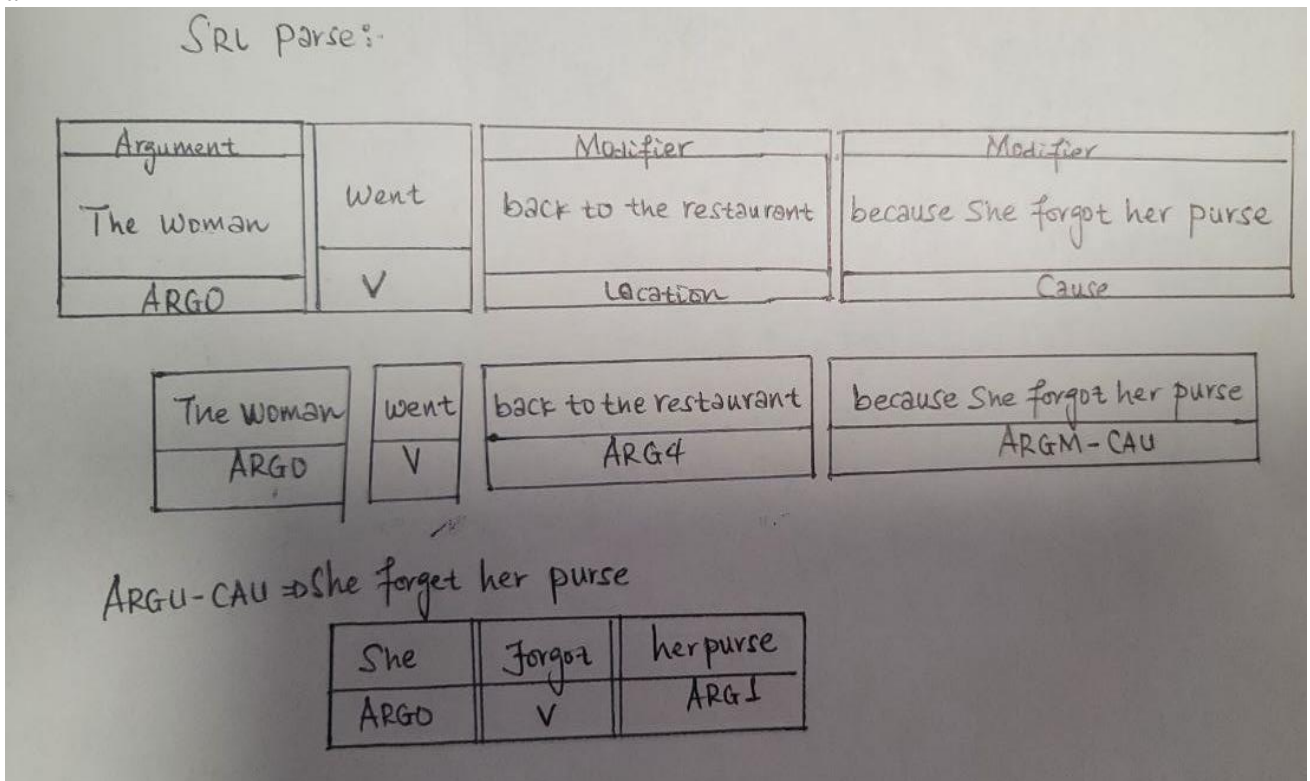 SRL parse:-
Argument Modifier Modifier
The woman went back to the restaurant because She forgot her purse
ARG0 V Location Cause
The woman went back to the restaurant because She forgot her purse
ARG0 V ARG4 ARGM-CAU
ARGU-CAU ⇒ She forget her purse
She Forgot her purse
ARG0 V ARG1